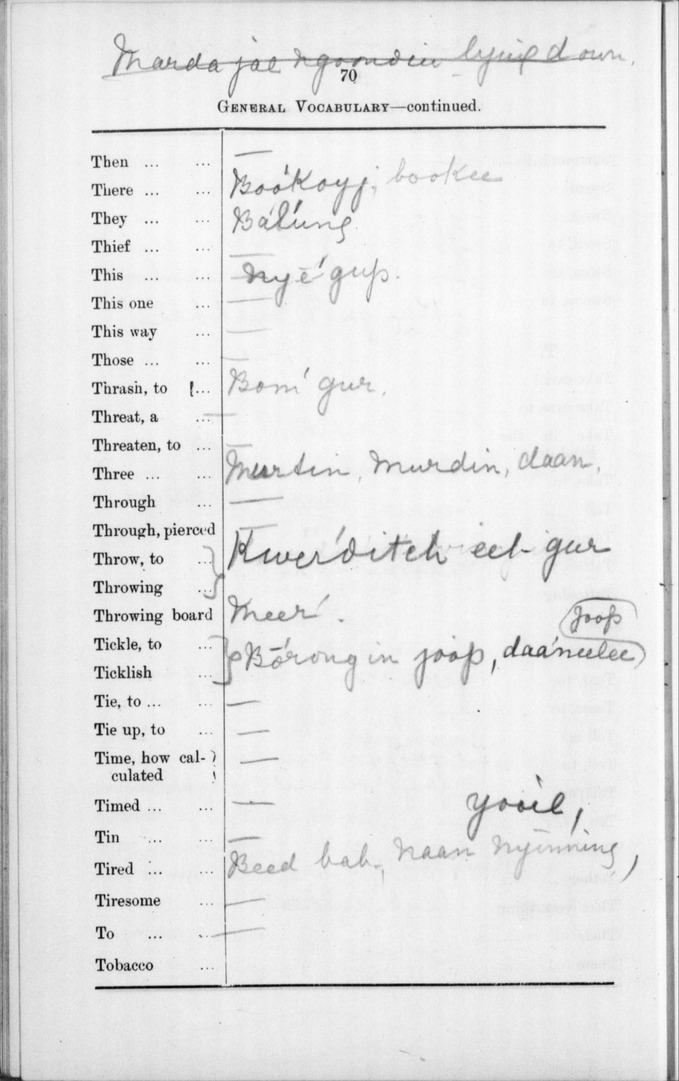 Marda jae ngoondeen lying down.
70
GENERAL VOCABULARY—continued.
Then ... ... —
There ... ... Boo'koyj, bookee
They ... ... Bál'ung
Thief ... ... —
This ... ... Nyē'gup.
This one ... —
This way ... —
Those ... ... —
Thrash, to ... Bom'gur.
Threat, a ... —
Threaten, to ... —
Three ... ... Murtin, Murdin, daan,
Through ... —
Through, pierced —
Throw, to ... Kwer'ditch eel-gur
Throwing ...
Throwing board Meer'.
joop
Tickle, to ... Bōrong in joop, daa'neelee
Ticklish ...
Tie, to ... ... —
Tie up, to ... —
Time, how cal- —
culated
Timed ... ... —
yooil,
Tin ... ... —
Tired ... ... Beed bab, naan nyinning,
Tiresome ... —
To ... ... —
Tobacco ...